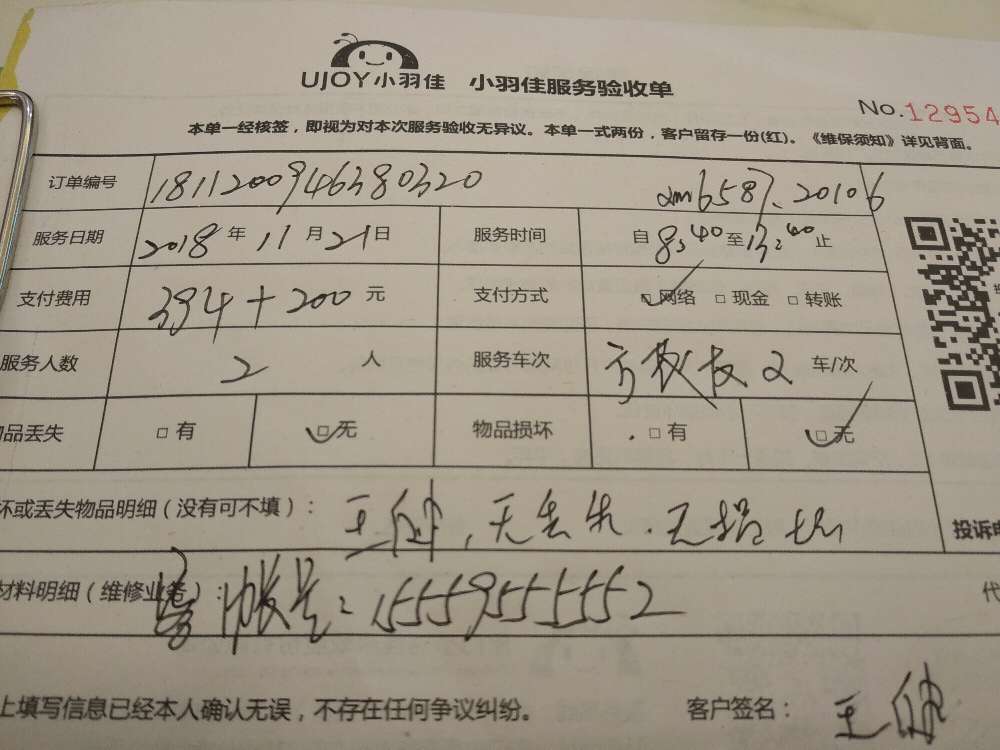 UJOY小羽佳 小羽佳服务验收单
No.12954
本单一经核签，即视为对本次服务验收无异议。本单一式两份，客户留存一份(红)。《维保须知》详见背面。
订单编号 1811200946380320
服务日期 2018年11月21日 服务时间 自8:40至13:40止
支付费用 394+200元 支付方式 网络 □现金 □转账
服务人数 2人 服务车次 2车/次
品丢失 □有 □无 物品损坏 □有 □无
坏或丢失物品明细（没有可不填）： 无丢失.无损坏
材料明细（维修业务）： 帐号：15559555552
代
投诉电
上填写信息已经本人确认无误，不存在任何争议纠纷。 客户签名：